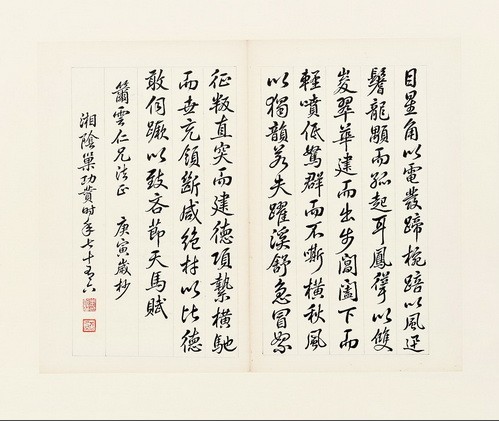 目星角以電發蹄椀踣以風迅
鬐龍顒而孤起耳鳳聳以雙
峻翠華建而出步閶闔下而
輕噴低駑群而不嘶橫秋風
以獨韻若失躍溪舒急冒絮
征叛直突而建德項縶橫馳
而世充領斷咸絕材以比德
敢伺蹶以致吝節天馬賦
簫雲仁兄法正 庚寅歲杪
湘陰巢功贊时年七十又六